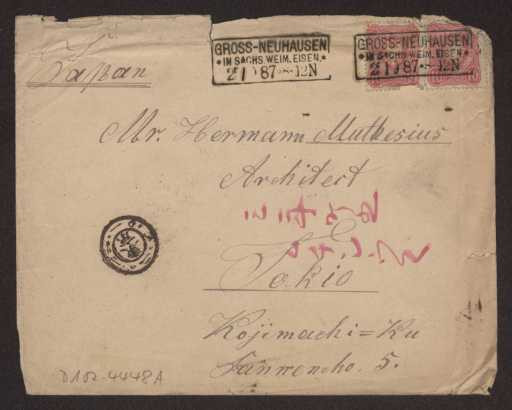 Japan
GROSS-NEUHAUSEN
* IN SACHS.WEIM.EISEN. *
87 12N
GROSS-NEUHAUSEN
* IN SACHS.WEIM.EISEN. *
87 12N
Mr. Hermann Muthesius
Architect
Tokio
Kojimachi=Ku
Sanvencho. 5.
D102-4448A